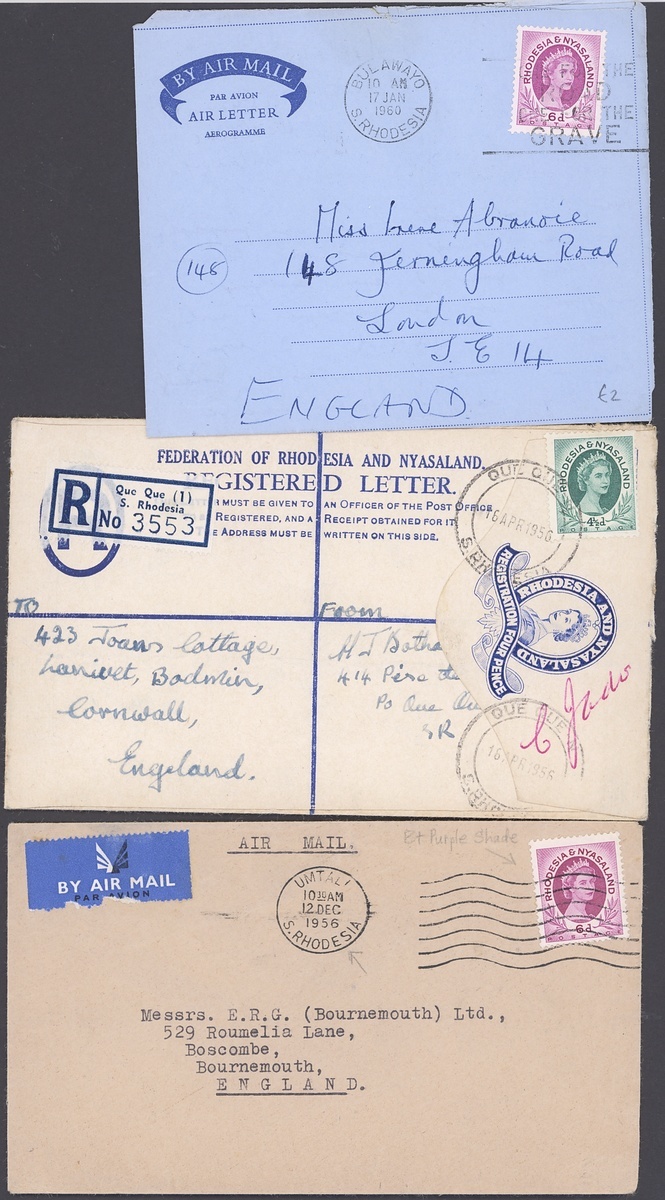 BY AIR MAIL
PAR AVION
AIR LETTER
AEROGRAMME
BULAWAYO
10 AM
17 JAN
1960
S. RHODESIA
RHODESIA & NYASALAND
6d
POSTAGE
THE
THE
GRAVE
Miss Irene
148 Jerningham Road
148
London
S.E 14
ENGLAND
£2
FEDERATION OF RHODESIA AND NYASALAND
REGISTERED LETTER.
LETTER MUST BE GIVEN TO AN OFFICER OF THE POST OFFICE
REGISTERED, AND A RECEIPT OBTAINED FOR IT
ADDRESS MUST BE WRITTEN ON THIS SIDE.
R
Que Que (1)
S. Rhodesia
No 3553
QUE QUE
16 APR 1956
S. RHODESIA
RHODESIA & NYASALAND
4½d
POSTAGE
RHODESIA AND NYASALAND
REGISTRATION FOUR PENCE
TO
423 Joans Cottage,
Lanivet, Bodmin,
Cornwall,
Engeland.
From
H J
414
Po Que Qu
SR
QUE QUE
16 APR 1956
BY AIR MAIL
PAR AVION
AIR MAIL.
Bt Purple Shade
UMTALI
10 30 AM
12 DEC
1956
S. RHODESIA
RHODESIA & NYASALAND
6d
POSTAGE
Messrs. E.R.G. (Bournemouth) Ltd.,
529 Roumelia Lane,
Boscombe,
Bournemouth,
ENGLAND.